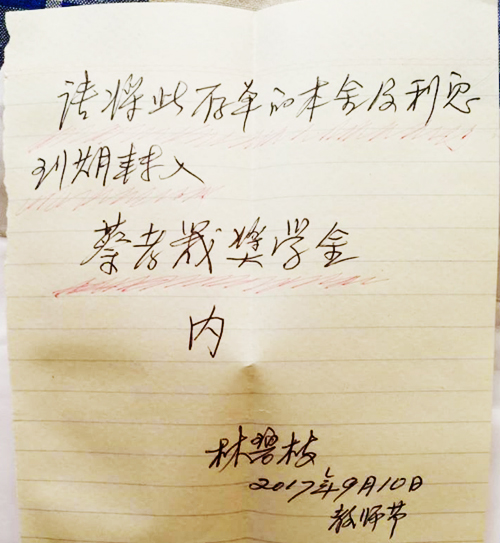 请将此存单的本金及利息
到期转入
蔡孝箴奖学金
内
林碧枝
2017年9月10日
教师节